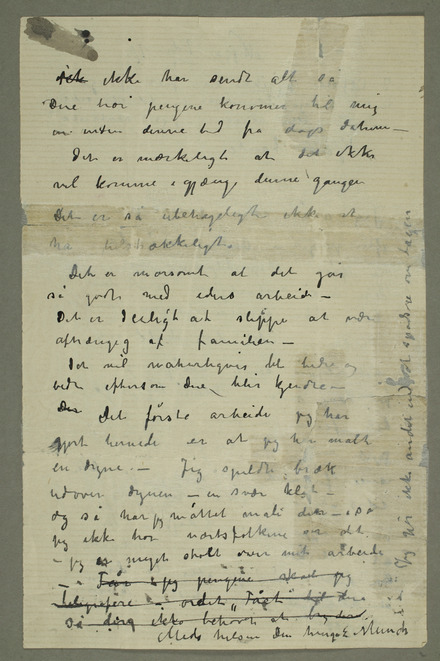 ikke har sendt alt så
Dere har pengene kommer til mig
en uten denne tid fra dags datum —
Det er mærkeligt at det ikke
vil komme i gjænge denne gangen
Det er så ubehageligt ikke at
ha tilstrækkeligt.
Det er morsomt at det går
så godt med eders arbeide —
Det er deiligt at slippe at være
afhængig af familien —
Det vil naturligvis bli bedre og
bedre eftersom Dere blir kjendte —
Det første arbeide jeg har
gjort hernede er at jeg har malt
en dyne. — Jeg spildte blæk
udover dynen — en svær klat —
og så har jeg måttet male den
jeg ikke
— jeg er meget stolt over mit arbeide
— Får jeg pengene skal jeg
telegrafere ordet „Fåt" til Dere
så Dere ikke behøver at
Med hilsen Din hengivne Munch
Jeg gjør ikke andet end at spadsere om dagen